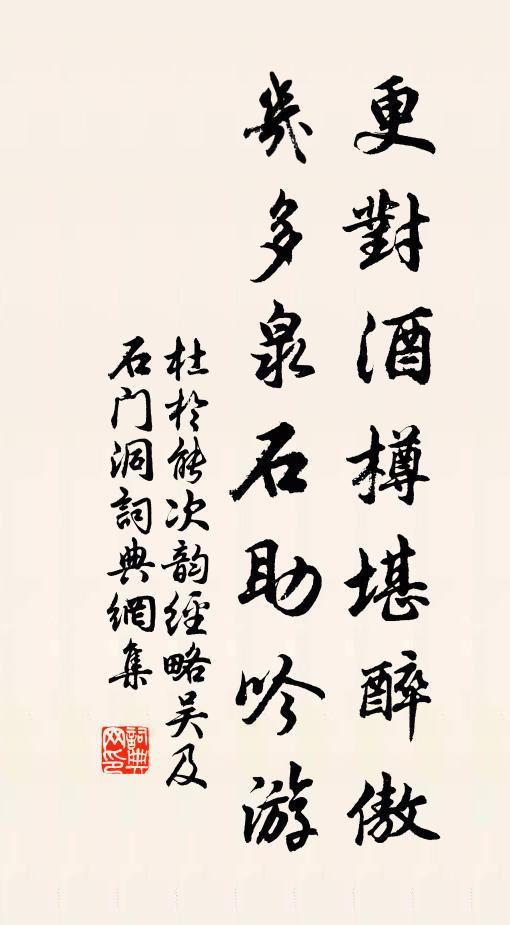 更對酒樽堪醉傲
幾多泉石助吟游
杜於能次韵經略吴及
石门洞詞典網集
詞典网印